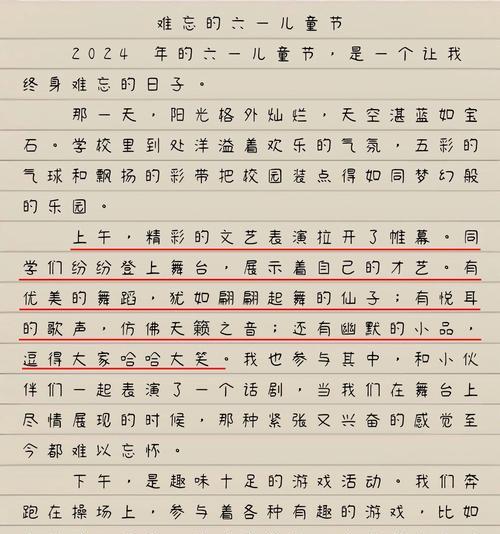 难忘的六一儿童节
2024 年的六一儿童节，是一个让我
终身难忘的日子。
那一天，阳光格外灿烂，天空湛蓝如宝
石。学校里到处洋溢着欢乐的气氛，五彩的
气球和飘扬的彩带把校园装点得如同梦幻般
的乐园。
上午，精彩的文艺表演拉开了帷幕。同
学们纷纷登上舞台，展示着自己的才艺。有
优美的舞蹈，犹如翩翩起舞的仙子；有悦耳
的歌声，仿佛天籁之音；还有幽默的小品，
逗得大家哈哈大笑。我也参与其中，和小伙
伴们一起表演了一个话剧，当我们在舞台上
尽情展现的时候，那种紧张又兴奋的感觉至
今都难以忘怀。
下午，是趣味十足的游戏活动。我们奔
跑在操场上，参与着各种有趣的游戏，比如